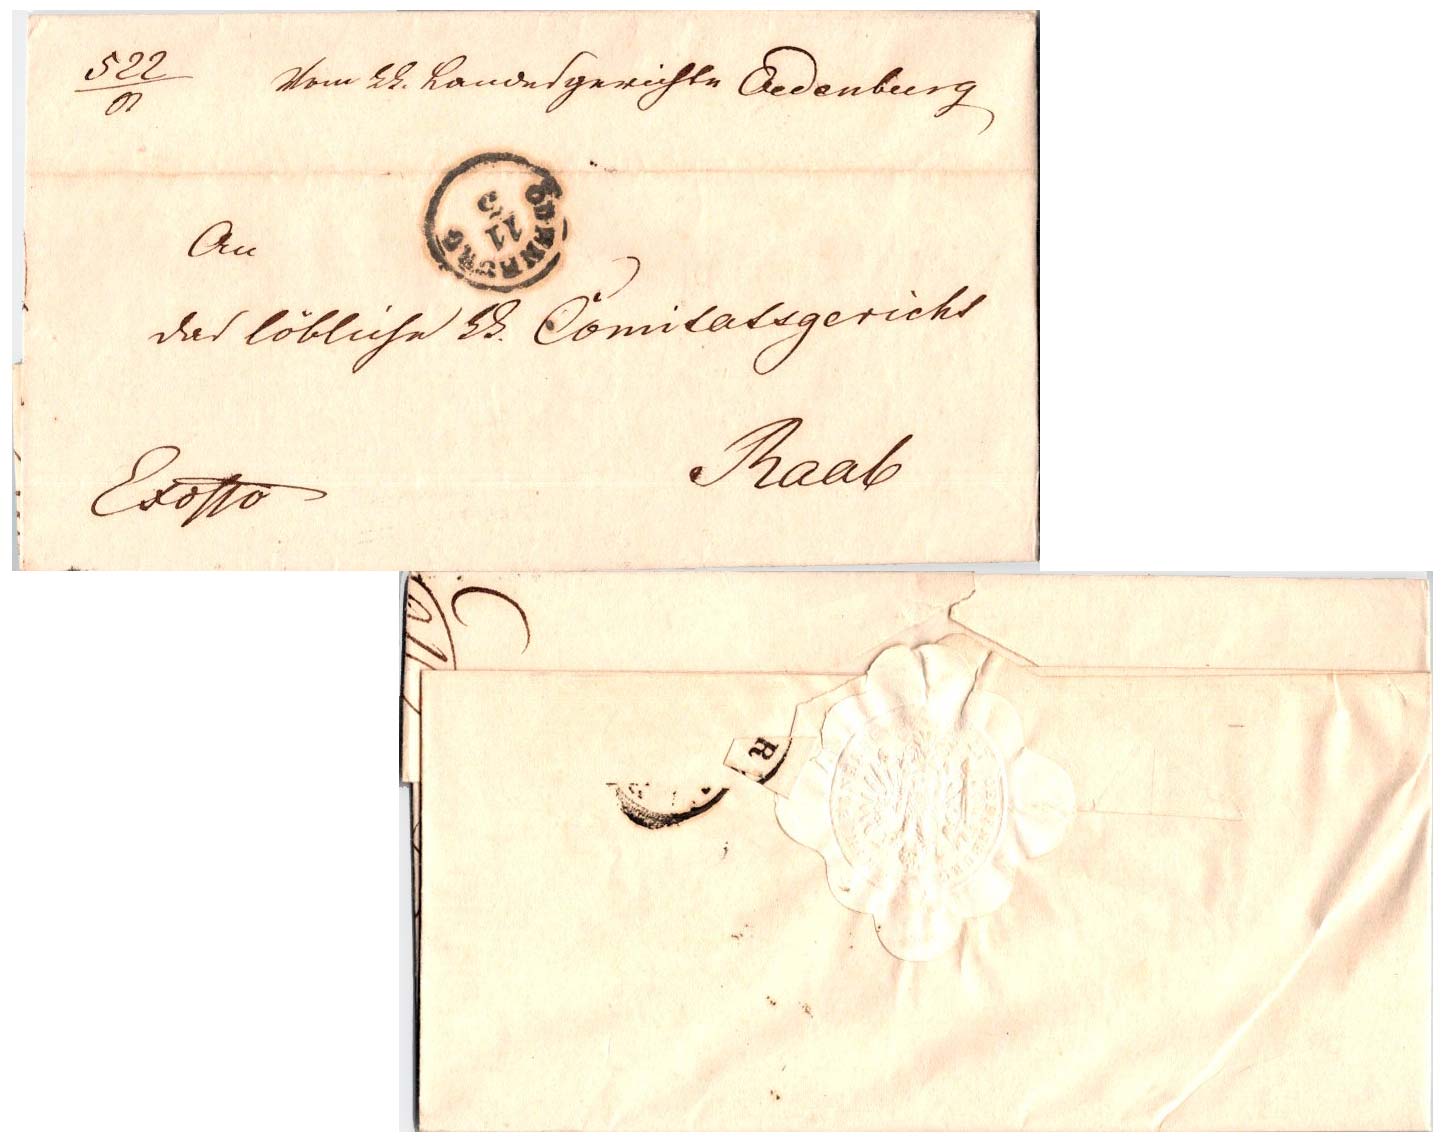 522
Vom KK. Landesgerichte Oedenburg
ÖDENBURG
11
5
An
das löbliche KK. Comitatsgericht
Raab
Exoffo
R